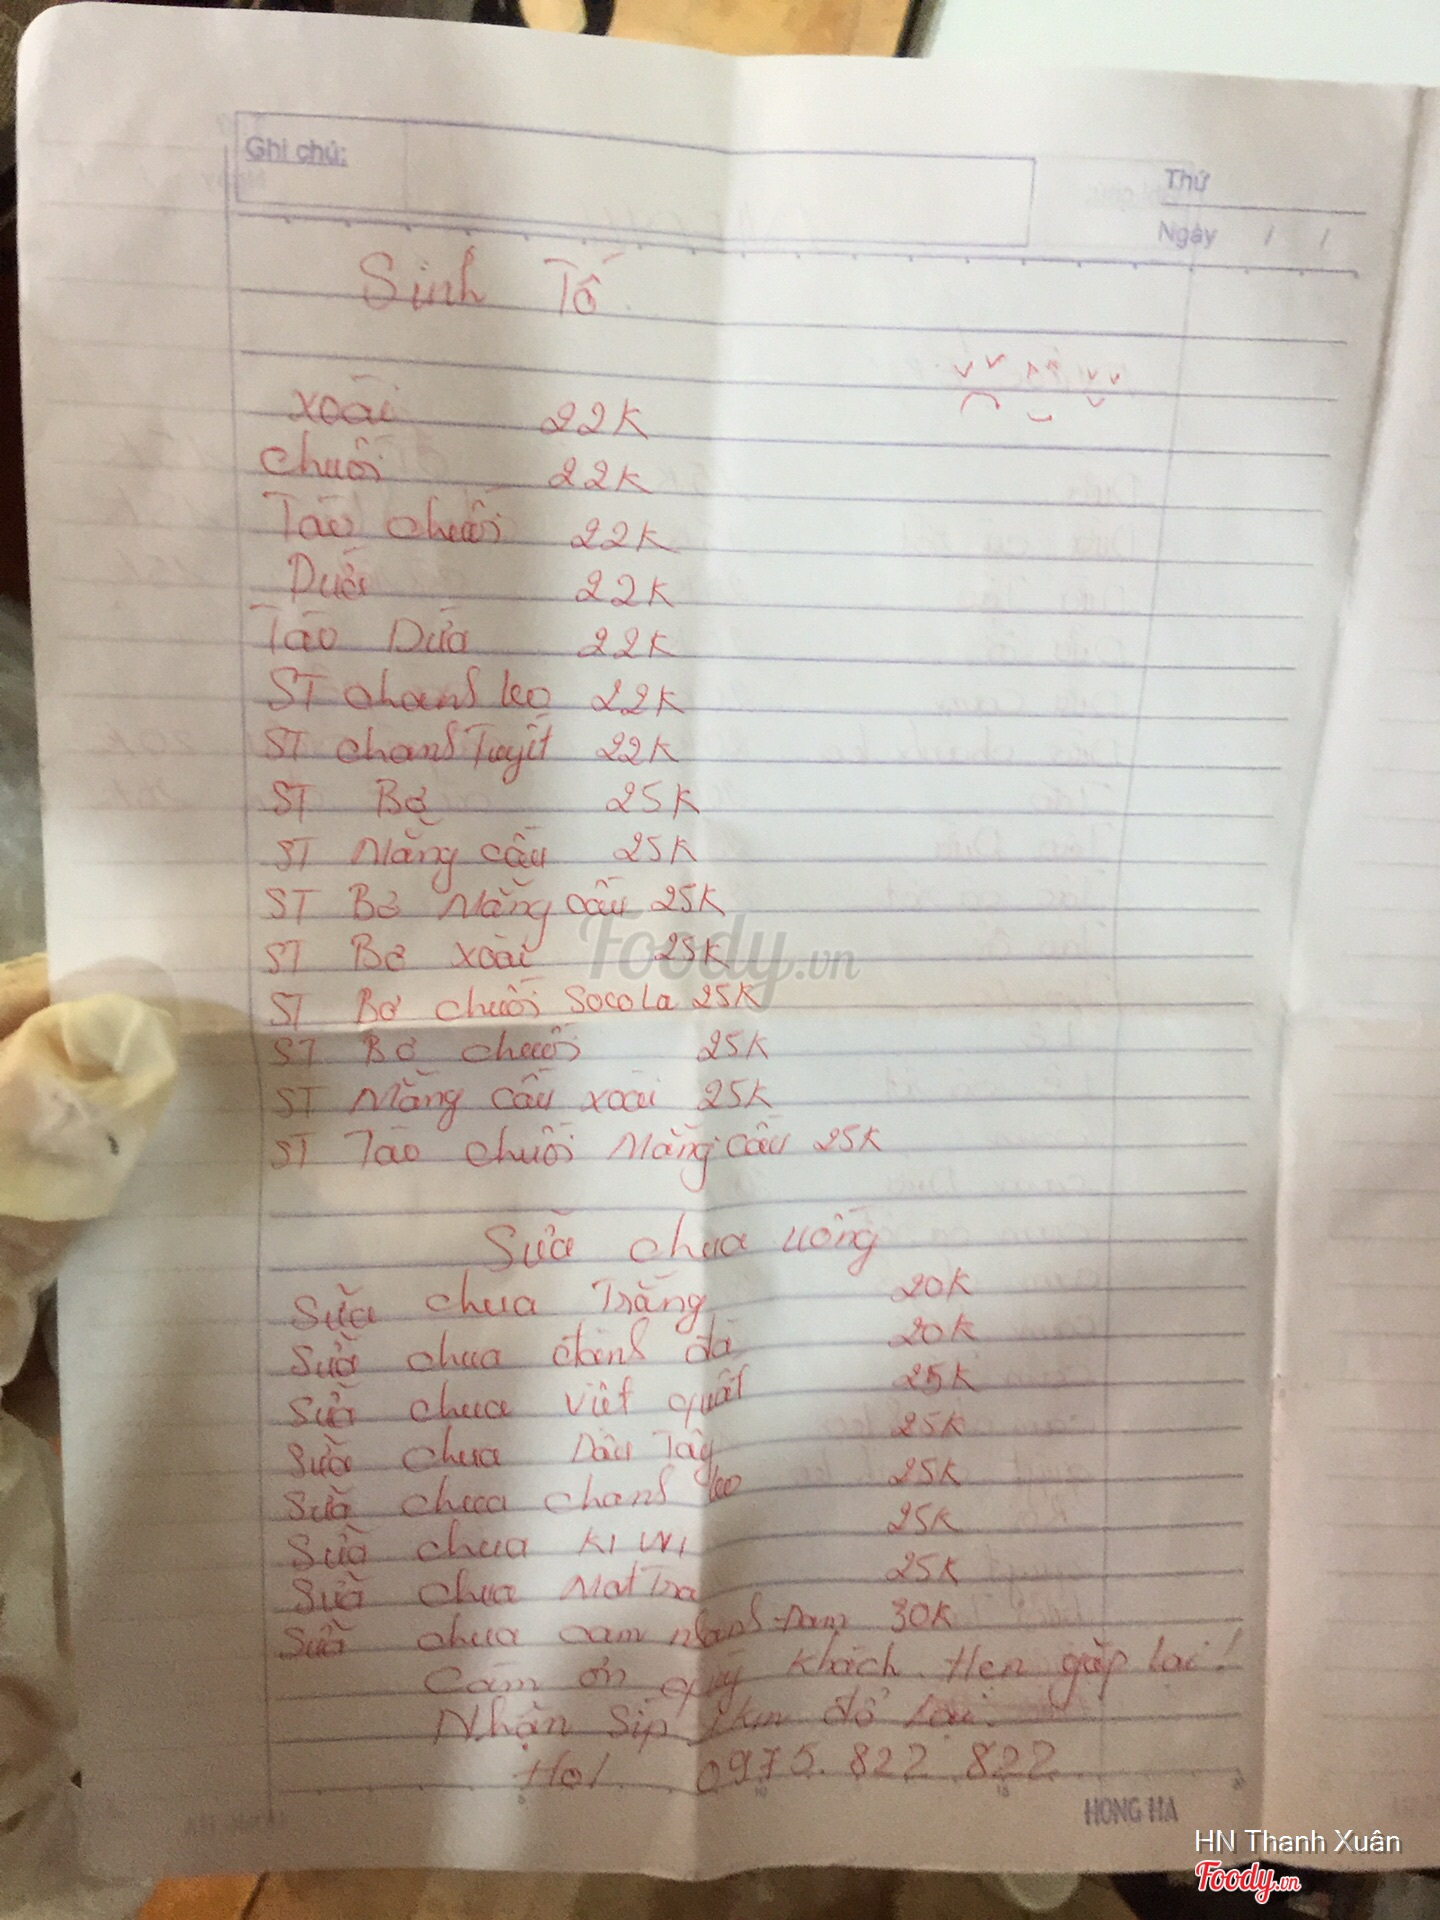 Ghi chú:
Thứ
Ngày / /
Sinh Tố
xoài 22K
chuối 22K
Táo chuối 22K
22K
Táo Dứa 22K
ST chanh leo 22K
ST chanh Tuyết 22K
ST Bơ 25K
ST Mãng cầu 25K
ST Bơ Mãng cầu 25K
ST Bơ xoài 25K
ST Bơ chuối Socola 25K
ST Bơ chuối 25K
ST Mãng cầu xoài 25K
ST Táo chuối Mãng cầu 25K
Sữa chua uống
Sữa chua Trắng 20K
Sữa chua đánh đá 20K
Sữa chua việt quất 25K
Sữa chua Dâu Tây 25K
Sữa chua chanh leo 25K
Sữa chua KI WI 25K
Sữa chua Mat Tra 25K
Sữa chua cam 30K
Cám ơn quý khách. Hẹn gặp lại!
Nhận Sip
Hol 0975.822 822
HONG HA
Foody.vn
HN Thanh Xuân
Foody.vn